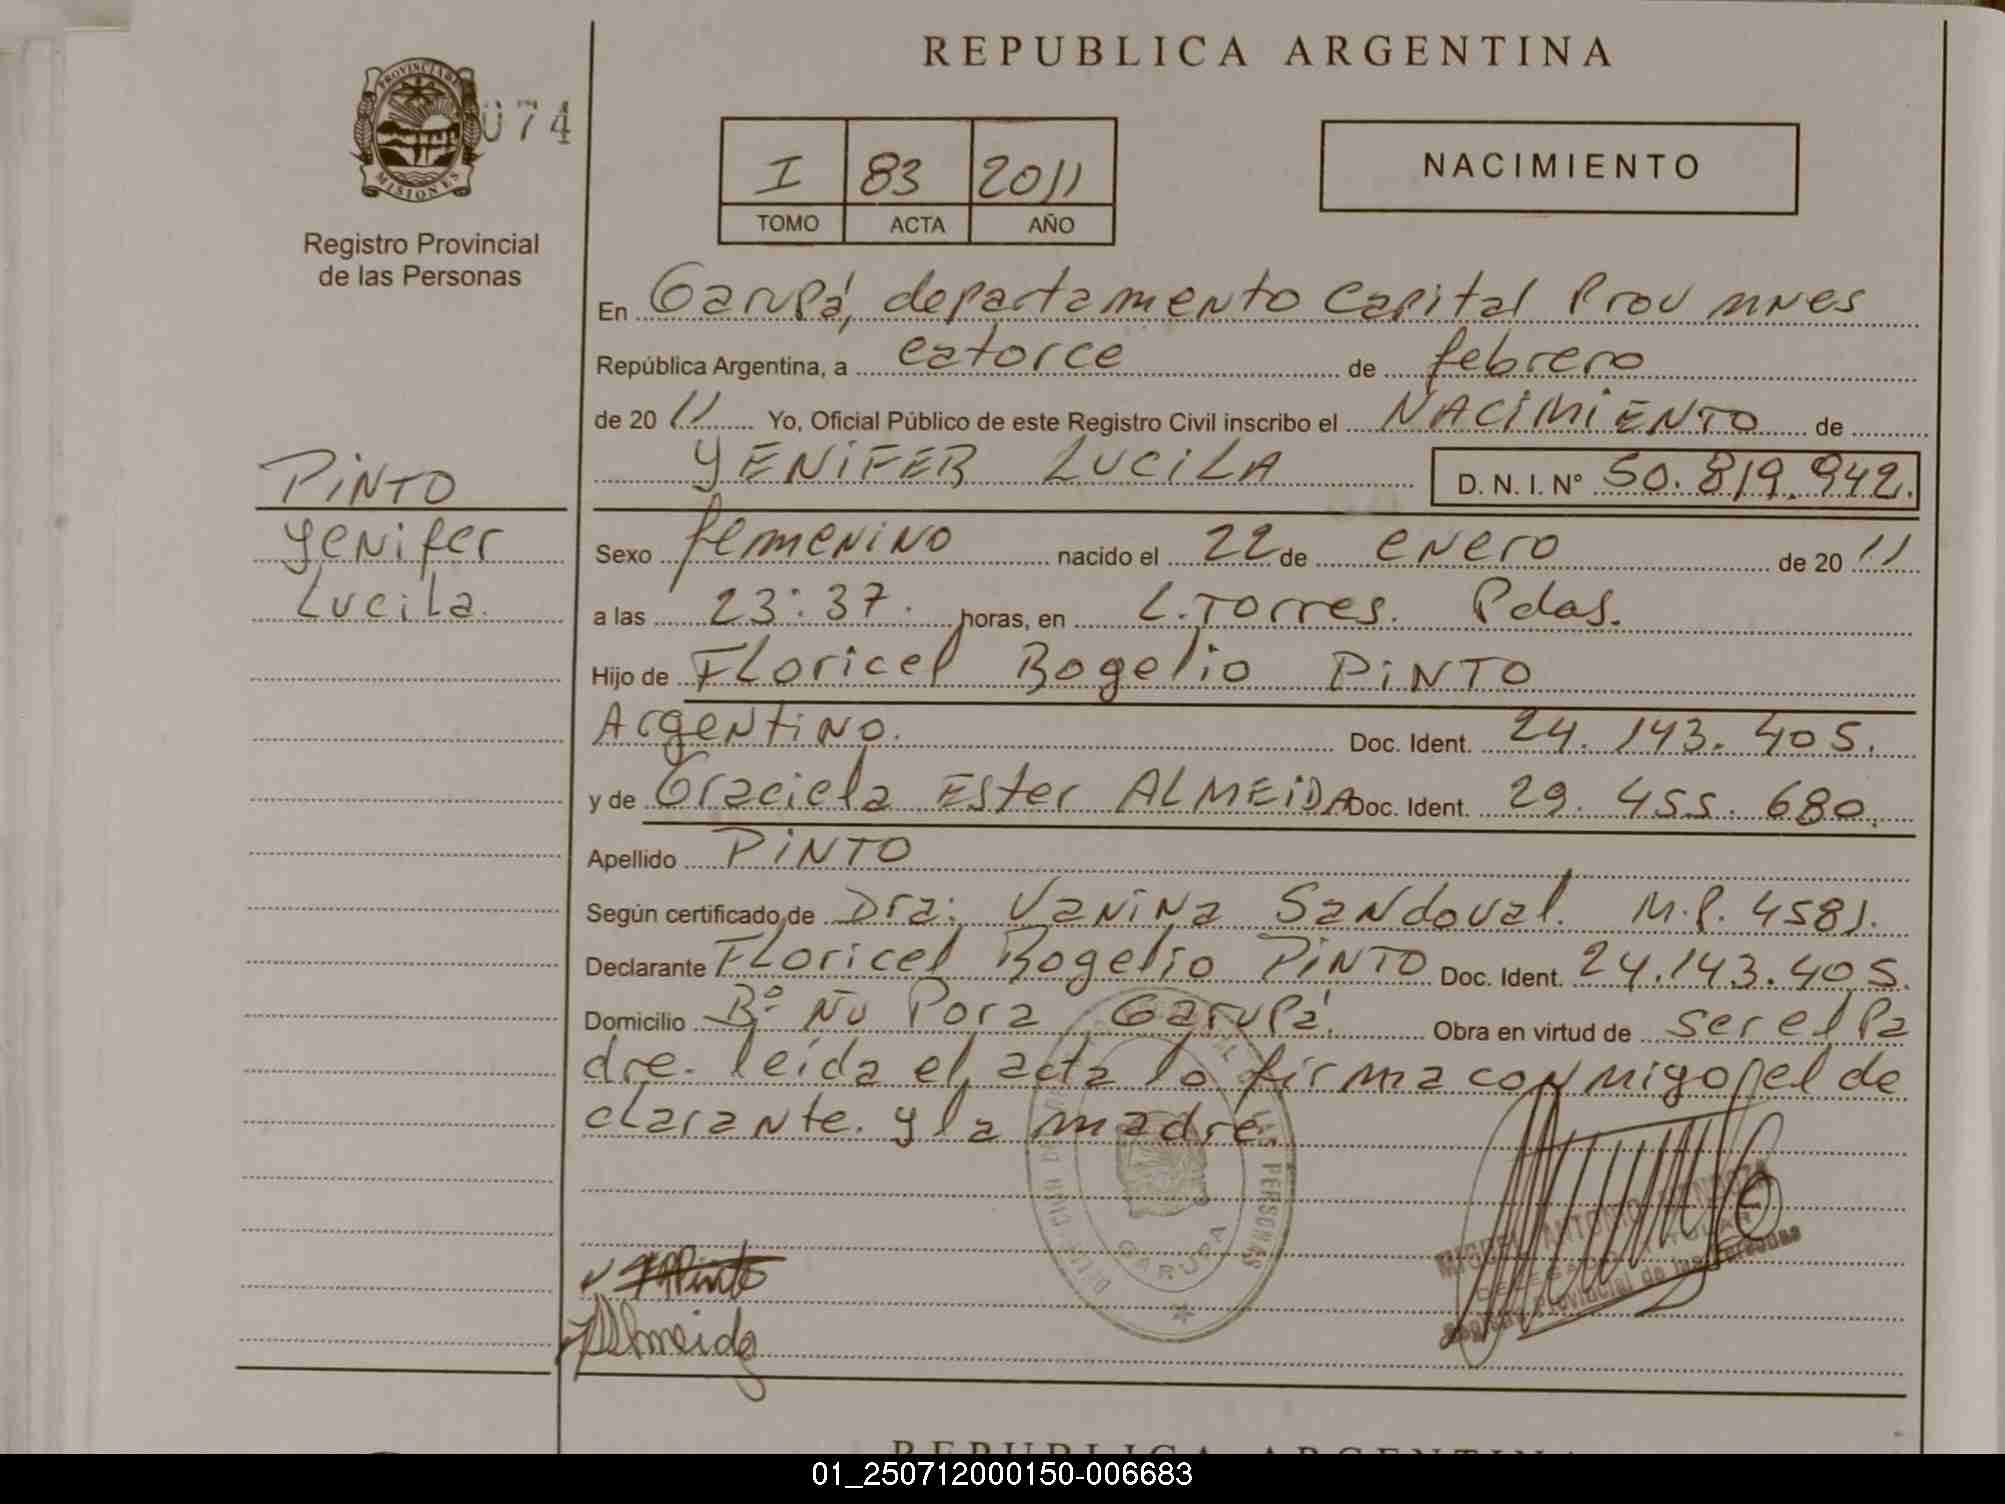 REPUBLICA ARGENTINA
PROVINCIA DE
MISIONES
074
Registro Provincial
de las Personas
I 83 2011
TOMO ACTA AÑO
NACIMIENTO
En Garupá, departamento Capital Prov mnes
República Argentina, a catorce de febrero
de 20 11 Yo, Oficial Público de este Registro Civil inscribo el NACIMIENTO de
YENIFER LUCILA D. N. I. Nº 50.819.942.
PINTO
Yenifer
Lucila.
Sexo femenino nacido el 22 de enero de 20 11
a las 23:37. horas, en L. Torres. Pdas.
Hijo de Floricel Rogelio PINTO
Argentino. Doc. Ident. 24.143.405.
y de Graciela Ester ALMEIDA Doc. Ident. 29.455.680.
Apellido PINTO
Según certificado de Dra: Vanina Sandoval. M.P. 4581.
Declarante Floricel Rogelio PINTO Doc. Ident. 24.143.405.
Domicilio Bº Ñu Pora Garupá. Obra en virtud de ser el Pa
dre. leida el acta lo firma conmigo el de
clarante. y la madre.
PERSONAS
GARUPA
Pinto
Almeida
MIGUEL ANTONIO
Provincial de las Personas
REPUBLICA ARGENTINA
01_250712000150-006683